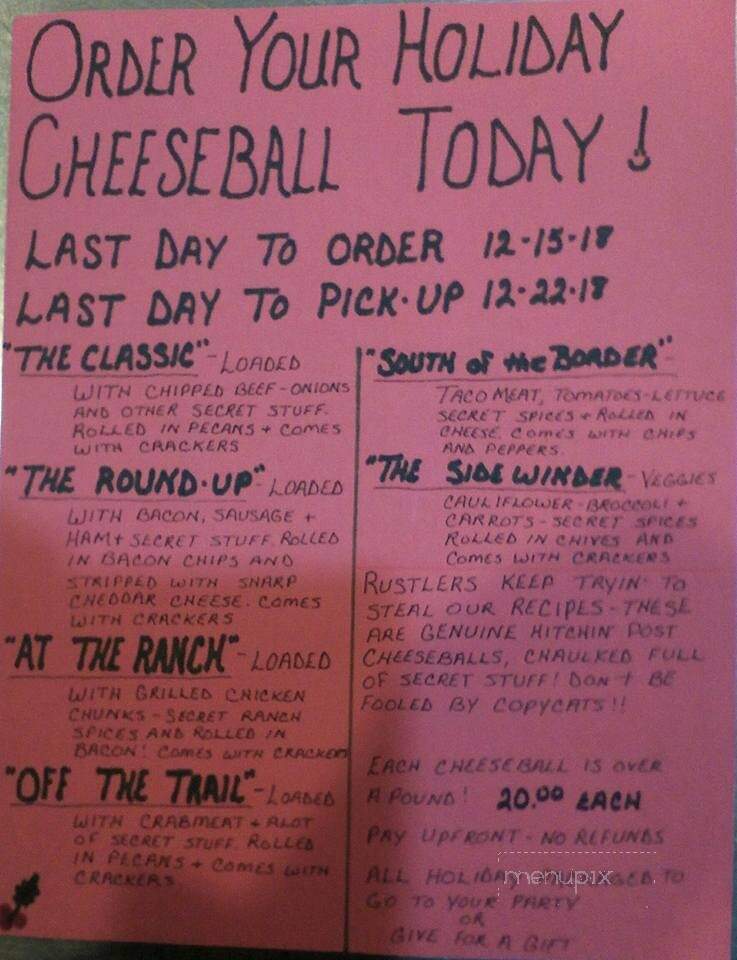 ORDER YOUR HOLIDAY
CHEESEBALL TODAY!
LAST DAY TO ORDER 12-15-18
LAST DAY TO PICK-UP 12-22-18
"THE CLASSIC" - LOADED
WITH CHIPPED BEEF - ONIONS
AND OTHER SECRET STUFF.
ROLLED IN PECANS + COMES
WITH CRACKERS
"THE ROUND-UP" - LOADED
WITH BACON, SAUSAGE +
HAM + SECRET STUFF. ROLLED
IN BACON CHIPS AND
STRIPPED WITH SHARP
CHEDDAR CHEESE. COMES
WITH CRACKERS
"AT THE RANCH" - LOADED
WITH GRILLED CHICKEN
CHUNKS - SECRET RANCH
SPICES AND ROLLED IN
BACON! COMES WITH CRACKERS
"OFF THE TRAIL" - LOADED
WITH CRABMEAT + ALOT
OF SECRET STUFF. ROLLED
IN PECANS + COMES WITH
CRACKERS
"SOUTH of the BORDER" -
TACO MEAT, TOMATOES - LETTUCE
SECRET SPICES + ROLLED IN
CHEESE. COMES WITH CHIPS
AND PEPPERS.
"THE SIDE WINDER - VEGGIES
CAULIFLOWER - BROCCOLI +
CARROTS - SECRET SPICES
ROLLED IN CHIVES AND
COMES WITH CRACKERS
RUSTLERS KEEP TRYIN' TO
STEAL OUR RECIPES - THESE
ARE GENUINE HITCHIN' POST
CHEESEBALLS, CHAULKED FULL
OF SECRET STUFF! DON'T BE
FOOLED BY COPYCATS!!
EACH CHEESEBALL IS OVER
A POUND! 20.00 EACH
PAY UPFRONT - NO REFUNDS
ALL HOLIDAY TO
GO TO YOUR PARTY
OR
GIVE FOR A GIFT
menupix